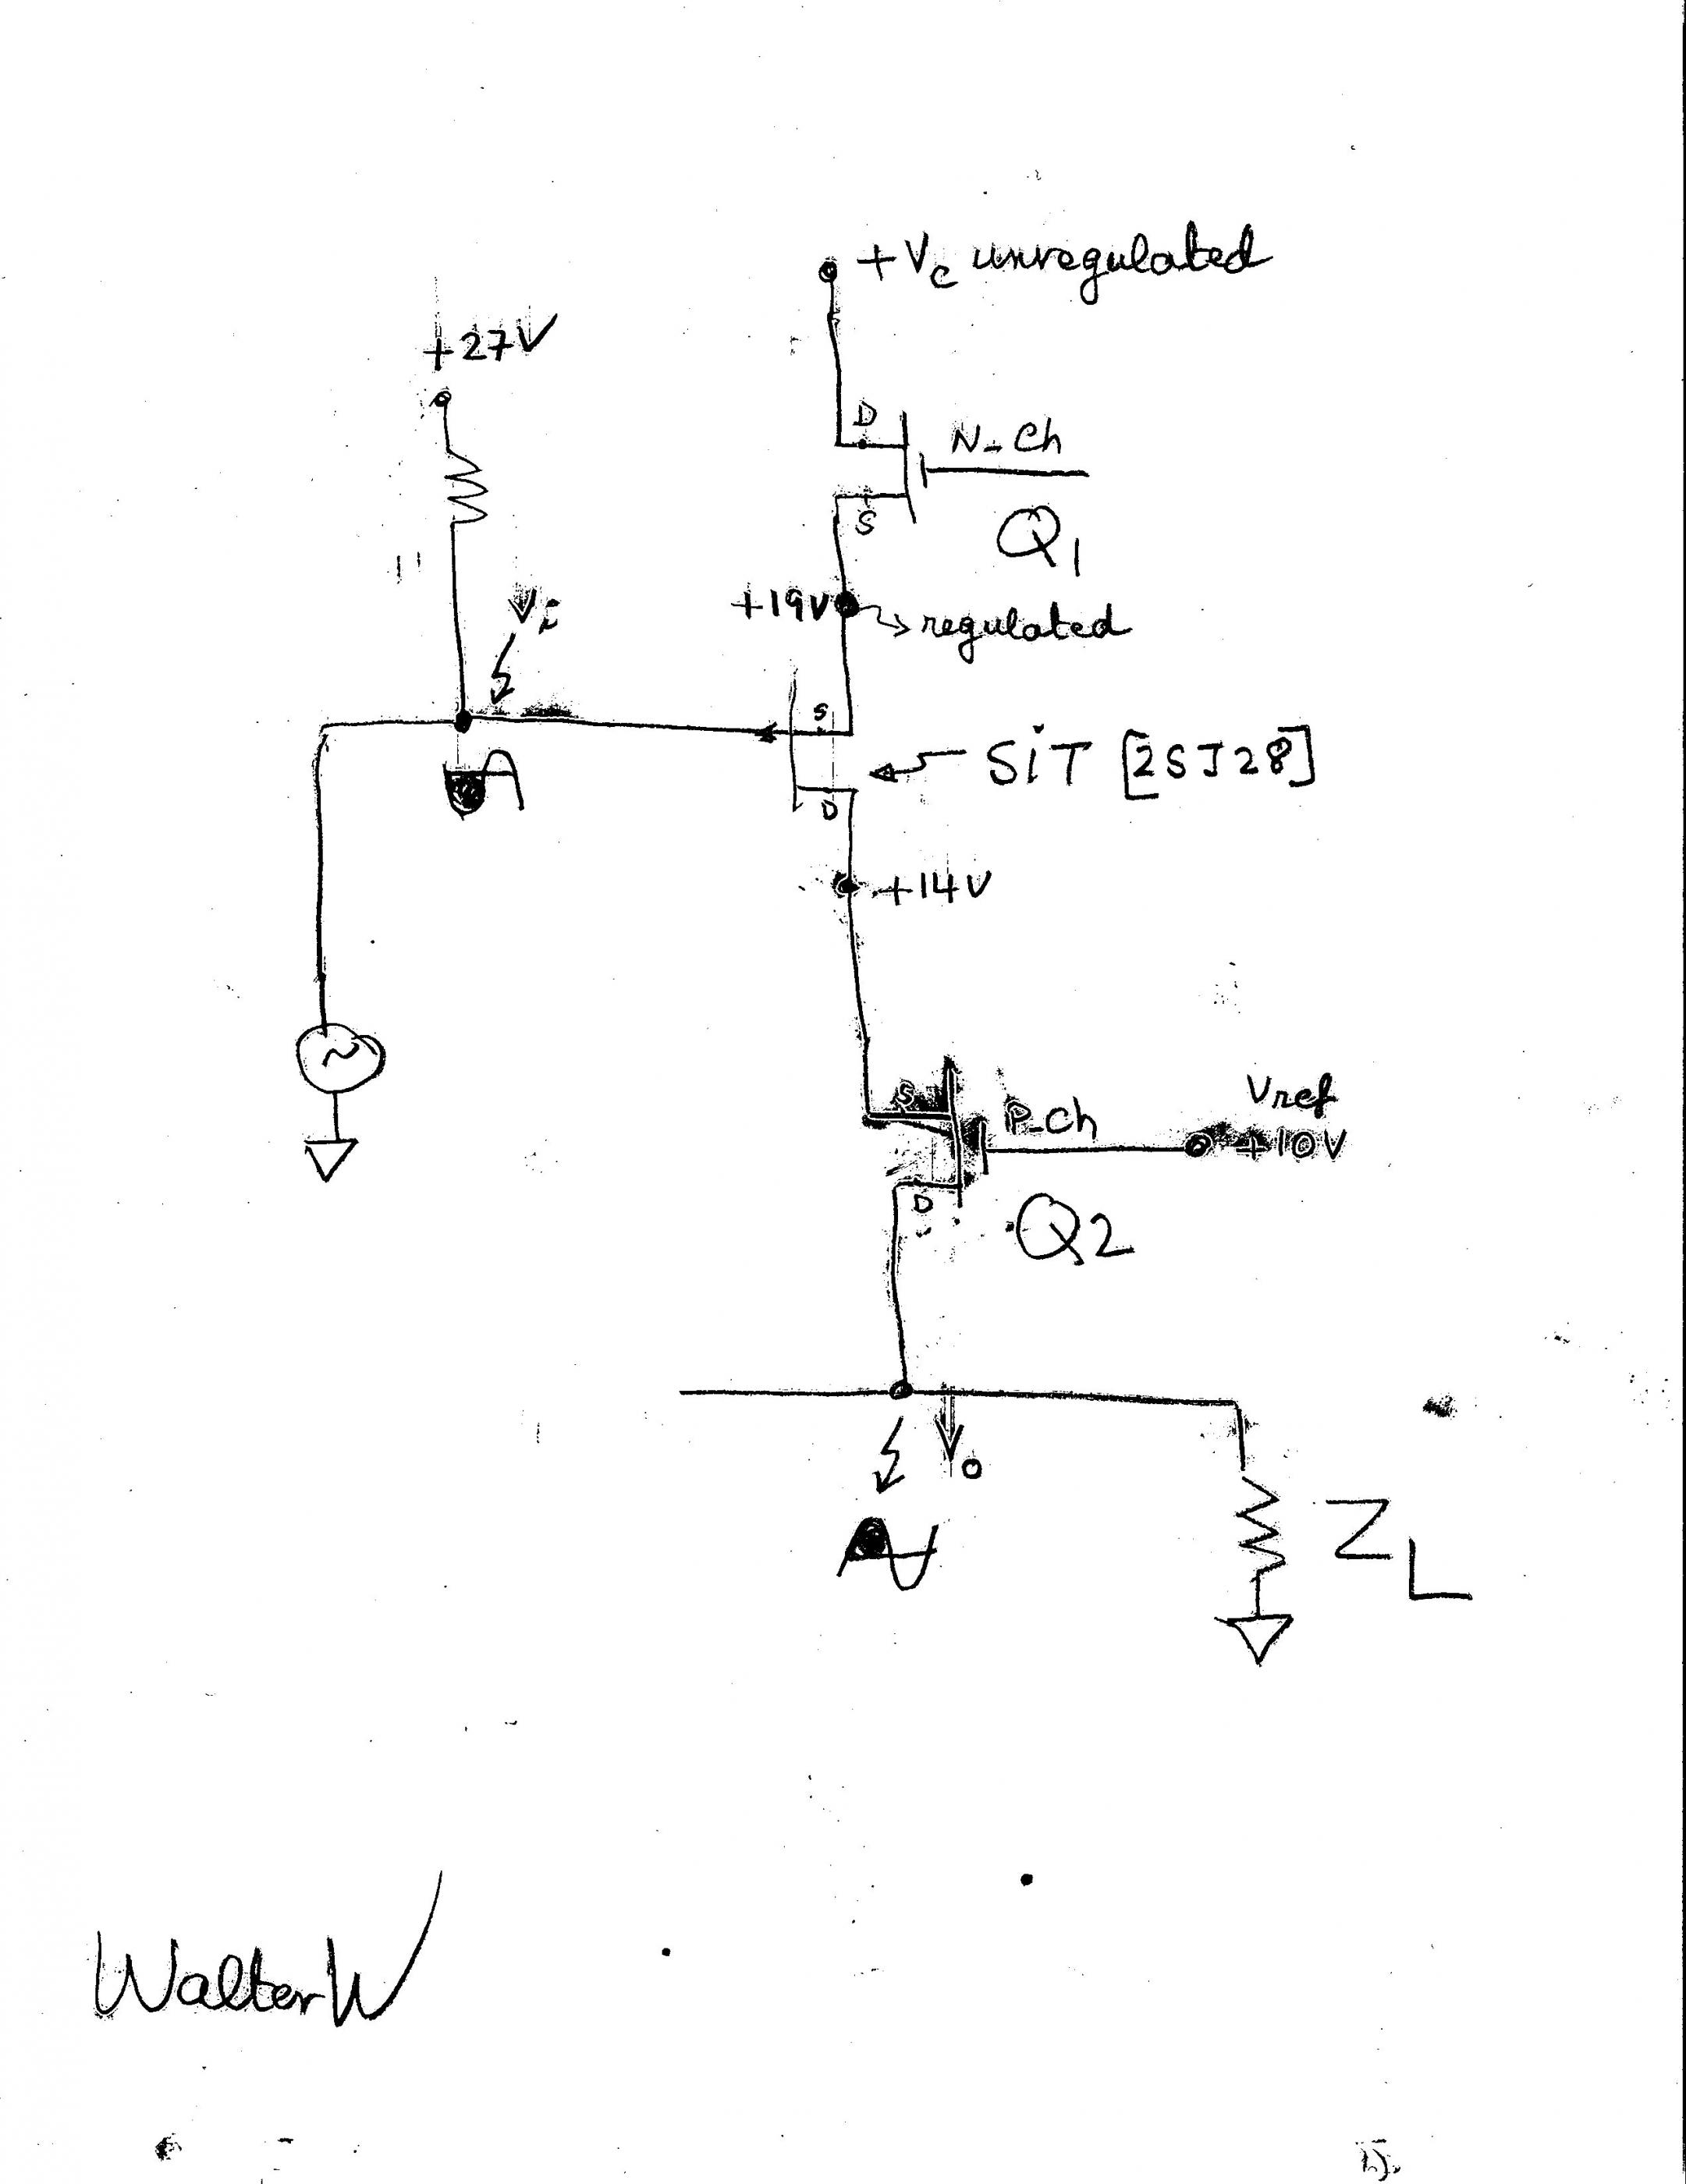 +Vc unregulated
+27V
D
N-Ch
S
Q1
Vi
+19V
regulated
S
SiT [2SJ28]
D
+14V
S
P-Ch
Vref
+10V
D
Q2
o
ZL
WalterW